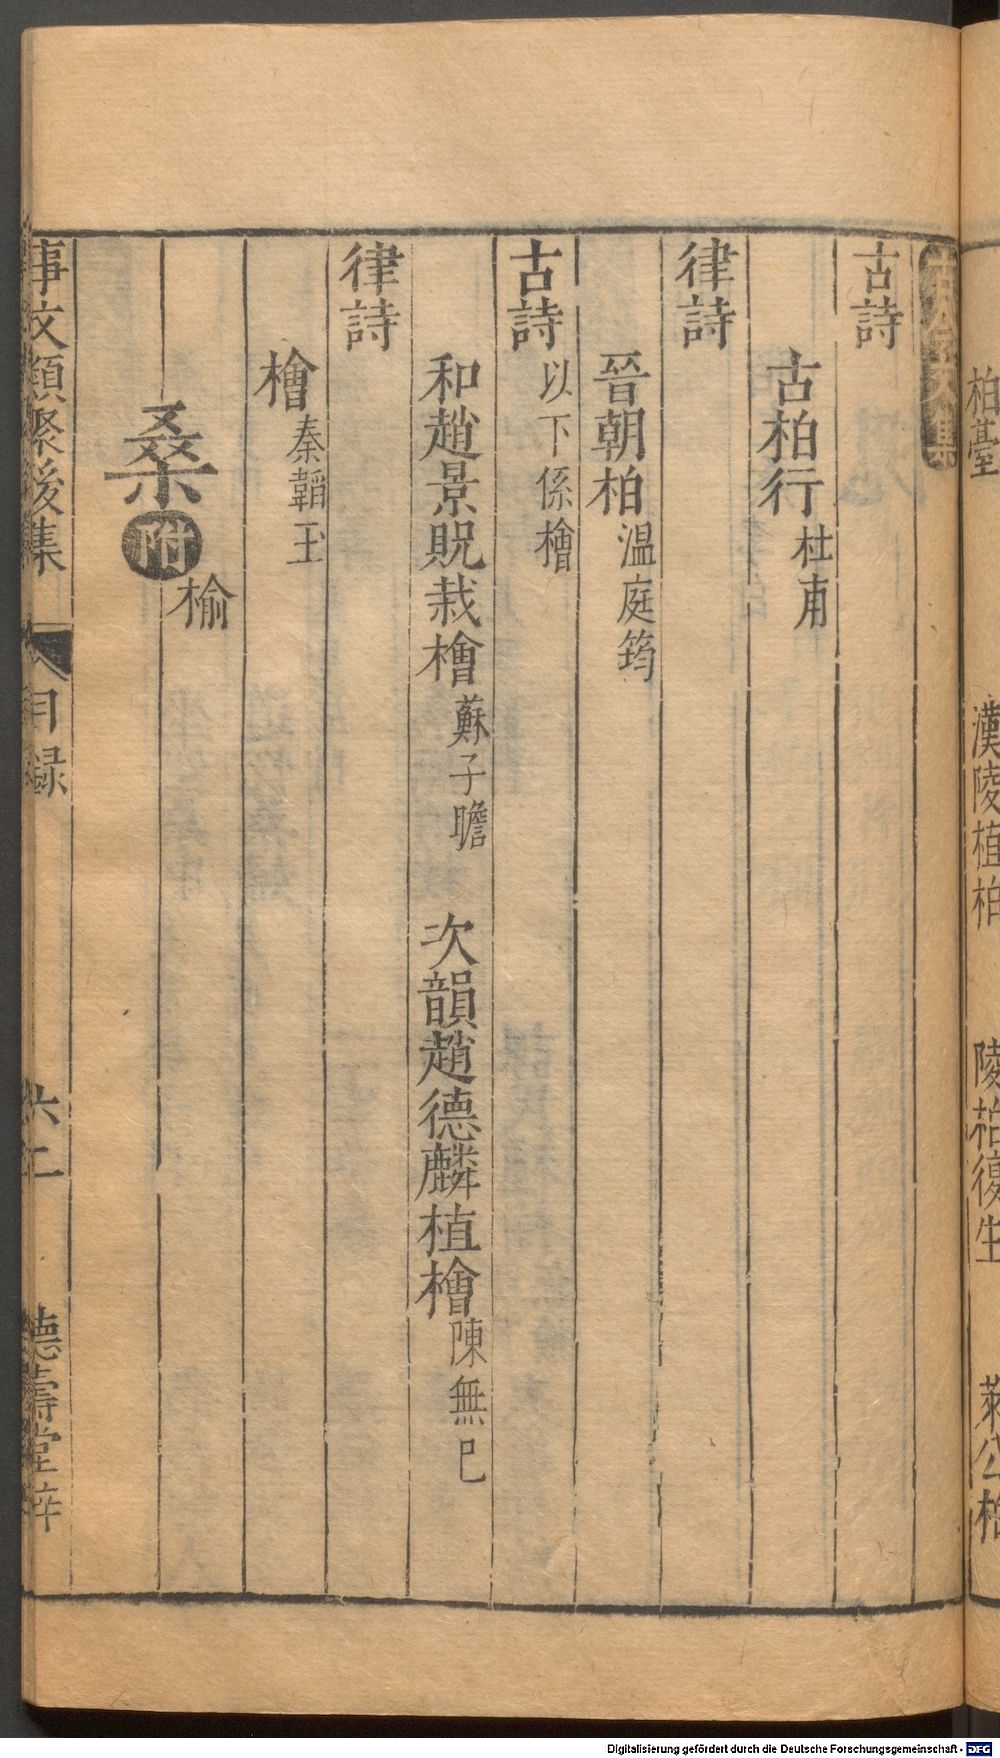 柏臺　漢陵植柏　陵柏復生　萊公柏
古今文集
古詩
古柏行 杜甫
律詩
晉朝柏 溫庭筠
古詩 以下係檜
和趙景貺栽檜 蘇子瞻　次韻趙德麟植檜 陳無已
律詩
檜 秦韜玉
桑 附
榆
事文類聚後集　目録　六二　德壽堂梓
Digitalisierung gefördert durch die Deutsche Forschungsgemeinschaft - DFG